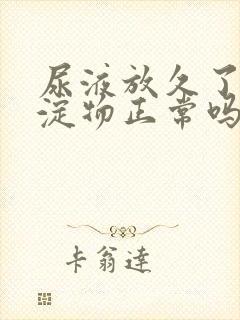 尿液放久了
淀物正常吗
卡翁達